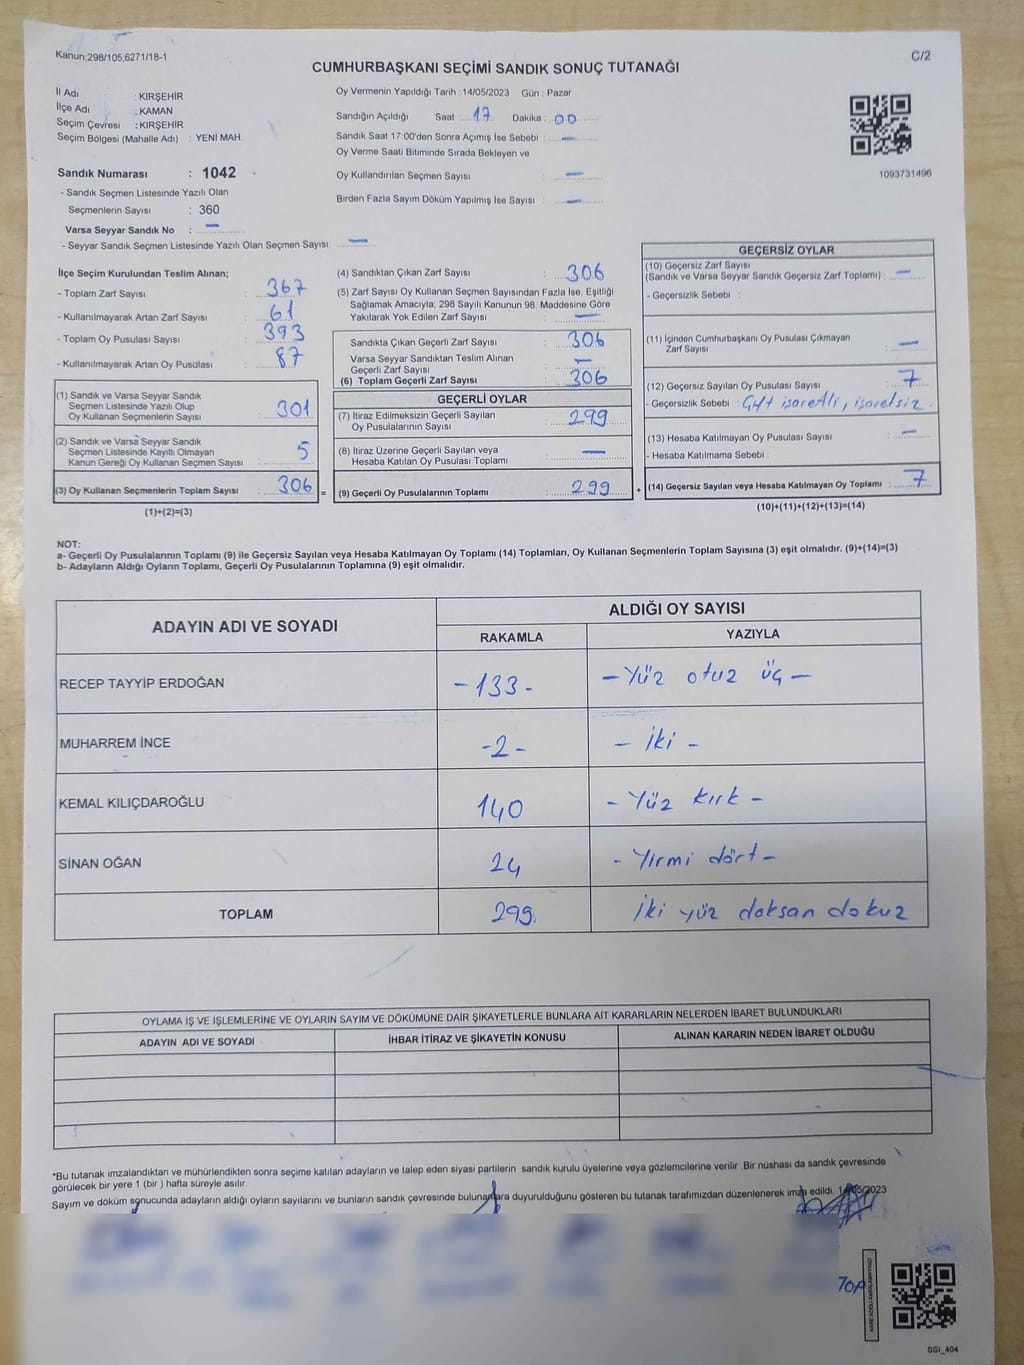 Kanun,298/105,6271/18-1
C/2
CUMHURBAŞKANI SEÇİMİ SANDIK SONUÇ TUTANAĞI
İl Adı : KIRŞEHİR
İlçe Adı : KAMAN
Seçim Çevresi : KIRŞEHİR
Seçim Bölgesi (Mahalle Adı) : YENİ MAH.
Oy Vermenin Yapıldığı Tarih : 14/05/2023 Gün : Pazar
Sandığın Açıldığı Saat : 17 Dakika : 00
Sandık Saat 17:00'den Sonra Açımış İse Sebebi : —
Oy Verme Saati Bitiminde Sırada Bekleyen ve
Oy Kullandırılan Seçmen Sayısı : —
Birden Fazla Sayım Döküm Yapılmış İse Sayısı : —
1093731496
Sandık Numarası : 1042
- Sandık Seçmen Listesinde Yazılı Olan
Seçmenlerin Sayısı : 360
Varsa Seyyar Sandık No : —
- Seyyar Sandık Seçmen Listesinde Yazılı Olan Seçmen Sayısı: —
İlçe Seçim Kurulundan Teslim Alınan;
- Toplam Zarf Sayısı : 367
- Kullanılmayarak Artan Zarf Sayısı : 61
- Toplam Oy Pusulası Sayısı : 393
- Kullanılmayarak Artan Oy Pusulası : 87
(1) Sandık ve Varsa Seyyar Sandık
Seçmen Listesinde Yazılı Olup
Oy Kullanan Seçmenlerin Sayısı : 301
(2) Sandık ve Varsa Seyyar Sandık
Seçmen Listesinde Kayıtlı Olmayan
Kanun Gereği Oy Kullanan Seçmen Sayısı : 5
(3) Oy Kullanan Seçmenlerin Toplam Sayısı : 306 =
(1)+(2)=(3)
(4) Sandıktan Çıkan Zarf Sayısı : 306
(5) Zarf Sayısı Oy Kullanan Seçmen Sayısından Fazla İse, Eşitliği
Sağlamak Amacıyla; 298 Sayılı Kanunun 98. Maddesine Göre
Yakılarak Yok Edilen Zarf Sayısı : —
Sandıkta Çıkan Geçerli Zarf Sayısı : 306
Varsa Seyyar Sandıktan Teslim Alınan
Geçerli Zarf Sayısı : —
(6) Toplam Geçerli Zarf Sayısı : 306
GEÇERLİ OYLAR
(7) İtiraz Edilmeksizin Geçerli Sayılan
Oy Pusulalarının Sayısı : 299
(8) İtiraz Üzerine Geçerli Sayılan veya
Hesaba Katılan Oy Pusulası Toplamı : —
(9) Geçerli Oy Pusulalarının Toplamı : 299 +
GEÇERSİZ OYLAR
(10) Geçersiz Zarf Sayısı
(Sandık ve Varsa Seyyar Sandık Geçersiz Zarf Toplamı) : —
- Geçersizlik Sebebi :
(11) İçinden Cumhurbaşkanı Oy Pusulası Çıkmayan
Zarf Sayısı : —
(12) Geçersiz Sayılan Oy Pusulası Sayısı : 7
- Geçersizlik Sebebi : Çift işaretli, işaretsiz.
(13) Hesaba Katılmayan Oy Pusulası Sayısı : —
- Hesaba Katılmama Sebebi :
(14) Geçersiz Sayılan veya Hesaba Katılmayan Oy Toplamı : 7
(10)+(11)+(12)+(13)=(14)
NOT:
a- Geçerli Oy Pusulalarının Toplamı (9) ile Geçersiz Sayılan veya Hesaba Katılmayan Oy Toplamı (14) Toplamları, Oy Kullanan Seçmenlerin Toplam Sayısına (3) eşit olmalıdır. (9)+(14)=(3)
b- Adayların Aldığı Oyların Toplamı, Geçerli Oy Pusulalarının Toplamına (9) eşit olmalıdır.
ADAYIN ADI VE SOYADI
ALDIĞI OY SAYISI
RAKAMLA YAZIYLA
RECEP TAYYİP ERDOĞAN -133- -Yüz otuz üç-
MUHARREM İNCE -2- - İki -
KEMAL KILIÇDAROĞLU 140 - Yüz kırk -
SİNAN OĞAN 24 - Yirmi dört -
TOPLAM 299 İki yüz doksan dokuz
OYLAMA İŞ VE İŞLEMLERİNE VE OYLARIN SAYIM VE DÖKÜMÜNE DAİR ŞİKAYETLERLE BUNLARA AİT KARARLARIN NELERDEN İBARET BULUNDUKLARI
ADAYIN ADI VE SOYADI İHBAR İTİRAZ VE ŞİKAYETİN KONUSU ALINAN KARARIN NEDEN İBARET OLDUĞU
*Bu tutanak imzalandıktan ve mühürlendikten sonra seçime katılan adayların ve talep eden siyasi partilerin sandık kurulu üyelerine veya gözlemcilerine verilir .Bir nüshası da sandık çevresinde
görülecek bir yere 1 (bir ) hafta süreyle asılır.
Sayım ve döküm sonucunda adayların aldığı oyların sayılarını ve bunların sandık çevresinde bulunanlara duyurulduğunu gösteren bu tutanak tarafımızdan düzenlenerek imza edildi. 14/05/2023
SSI_404